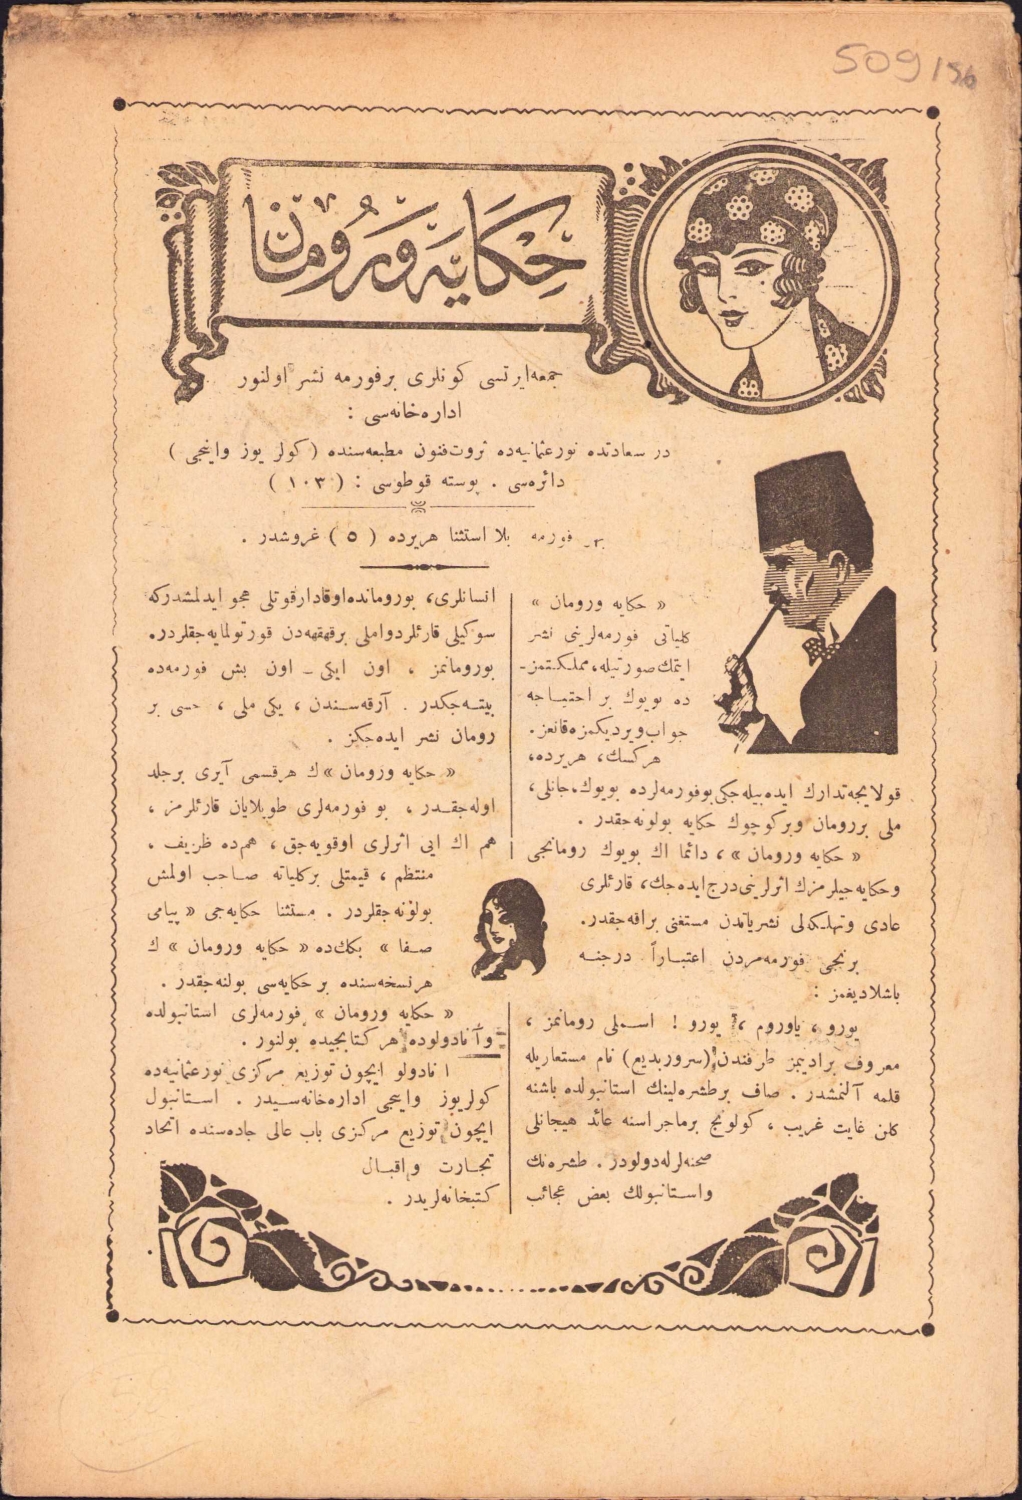 509/56
حكايه ورومان
جمعه‌ايرتسى كونلرى برفورمه نشر اولنور
اداره‌خانه‌سى :
در سعادتده نور عثمانيه‌ده ثروت‌فنون مطبعه‌سنده ( كولر يوز واينجى )
دائره‌سى . پوسته قوطوسى : ( ١٠٣ )
بر فورمه بلا استثنا هريرده ( ٥ ) غروشدر .
« حكايه ورومان »
كلياتى فورمه‌لرينى نشر
ايتمك صورتيله، مملكتمز-
ده بويوك بر احتياجه
جواب ويرديكمزه قانعز.
هركسك، هريرده،
قولايجه تدارك ايده‌بيله‌جكى بو فورمه‌لرده بويوك، جانلى،
ملى بررومان وبر كوچوك حكايه بولونه‌جقدر .
« حكايه ورومان »، دائما اك بويوك رومانجى
وحكايه‌جيلرمزك اثرلرينى درج ايده‌جك، قارئلرى
عادى وتهلكه‌لى نشرياتدن مستغنى براقه‌جقدر.
برنجى فورمه‌مزدن اعتباراً درجنه
باشلاديغمز :
يورو ، ياوروم ، يورو ! اسملى رومانمز ،
معروف براديبمز طرفندن (سرور بديع) نام مستعاريله
قلمه آلنمشدر . صاف برطشره‌لينك استانبولده باشنه
كلن غايت غريب ، كولونج برماجراسنه عائد هيجانلى
صحنه‌لرله دولودر . طشره‌نك
واستانبولك بعض عجائب
انسانلرى، بورومانده اوقادار قوتلى هجو ايدلمشدركه
سوكيلى قارئلر دواملى برقهقهه‌دن قورتولمايه‌جقلردر.
بورومانمز ، اون ايكى ـ اون بش فورمه‌ده
بيته‌جكدر . آرقه‌سندن ، يكى ملى ، حسى بر
رومان نشر ايده‌جكز .
« حكايه ورومان »ك هرقسمى آيرى برجلد
اوله‌جقدر ، بو فورمه‌لرى طوپلايان قارئلرمز ،
هم اك ايى اثرلرى اوقويه‌جق ، هم‌ده ظريف ،
منتظم ، قيمتلى بركلياته صاحب اولمش
بولونه‌جقلردر . مستثنا حكايه‌جى « پيامى
صفا » بكك‌ده « حكايه ورومان » ك
هر نسخه‌سنده بر حكايه‌سى بولنه‌جقدر .
« حكايه ورومان » فورمه‌لرى استانبولده
وآنادولوده هر كتابجيده بولنور .
انادولو ايچون توزيع مركزى نورعثمانيه‌ده
كولريوز واينجى اداره‌خانه‌سيدر . استانبول
ايچون توزيع مركزى باب عالى جاده‌سنده اتحاد
تجارت واقبال
كتبخانه‌لريدر .